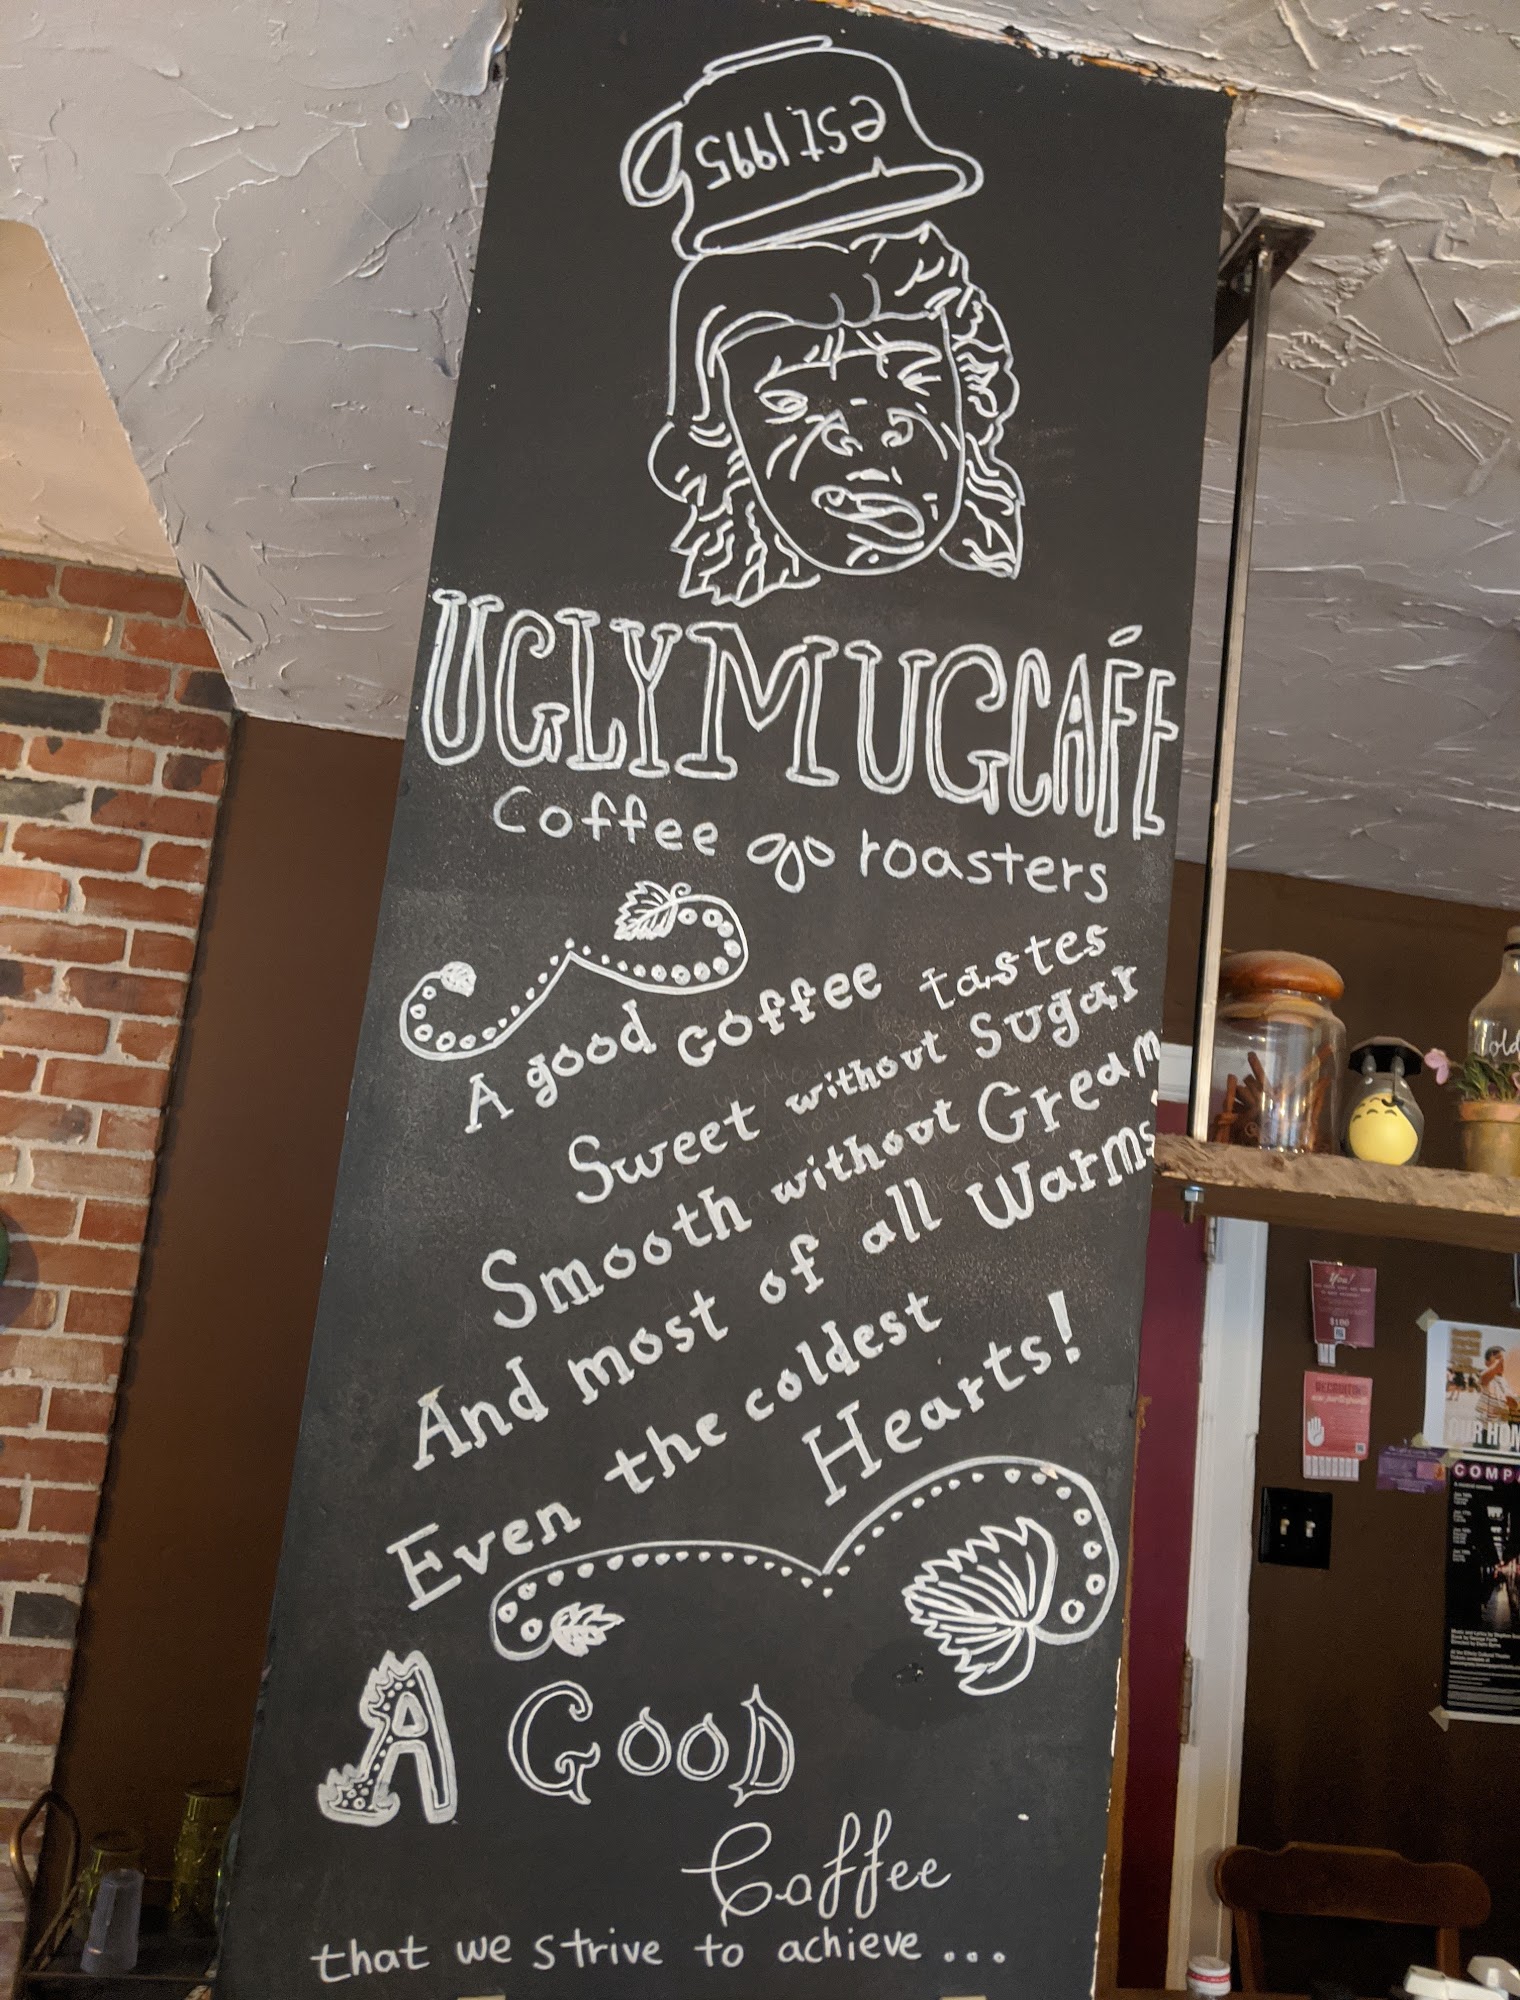 est 1995
UGLY MUG CAFÉ
Coffee roasters
A good coffee tastes
Sweet without Sugar
Smooth without Cream
And most of all Warms
Even the coldest
Hearts!
A GOOD
Coffee
that we strive to achieve...
old
You!
$100
RECRUITING
OUR HOM
COMPA